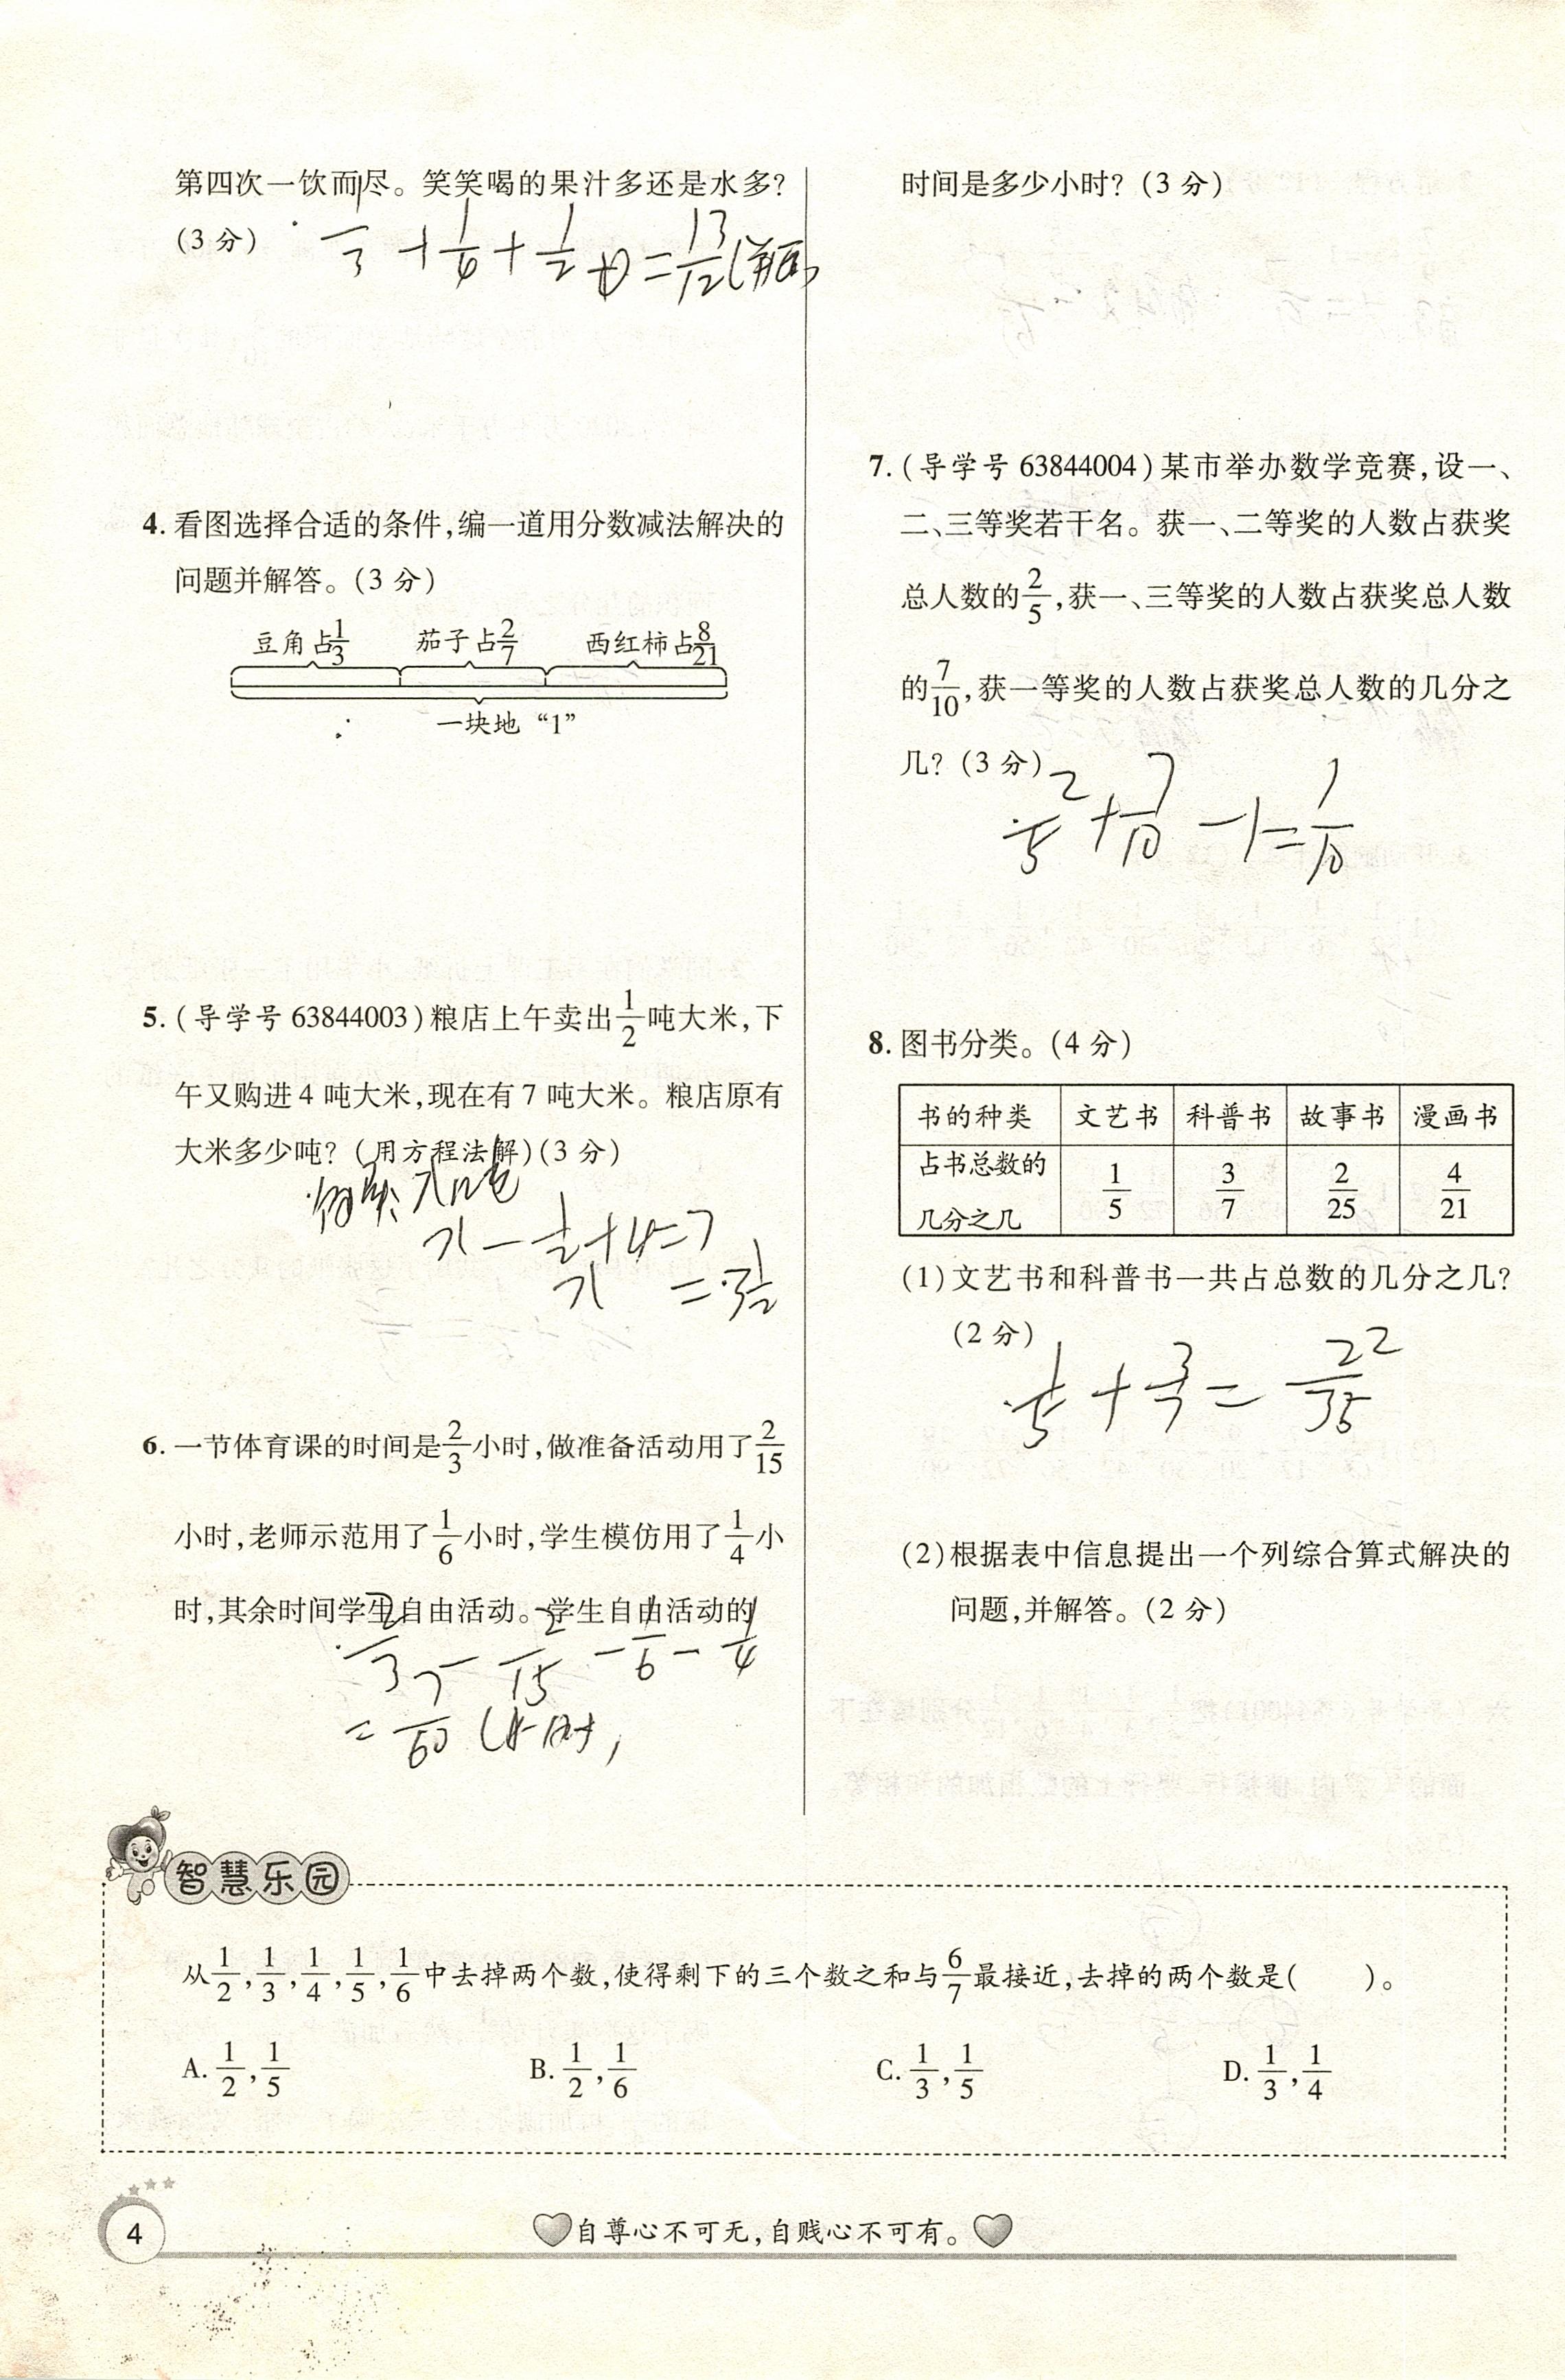 第四次一饮而尽。笑笑喝的果汁多还是水多?
(3 分)
1/3 + 1/4 + 1/2 = 13/12
4. 看图选择合适的条件,编一道用分数减法解决的
问题并解答。(3 分)
豆角占1/3 茄子占2/7 西红柿占8/21
一块地 “1”
5. (导学号 63844003)粮店上午卖出1/2吨大米,下
午又购进 4 吨大米,现在有 7 吨大米。粮店原有
大米多少吨? (用方程法解)(3 分)
x - 1/2 + 4 = 7
x = 3 1/2
6. 一节体育课的时间是2/3小时,做准备活动用了2/15
小时,老师示范用了1/6小时,学生模仿用了1/4小
时,其余时间学生自由活动。学生自由活动的
2/3 - 2/15 - 1/6 - 1/4
= 7/60 (小时)
时间是多少小时? (3 分)
7. (导学号 63844004)某市举办数学竞赛,设一、
二、三等奖若干名。获一、二等奖的人数占获奖
总人数的2/5,获一、三等奖的人数占获奖总人数
的7/10,获一等奖的人数占获奖总人数的几分之
几? (3 分)
2/5 + 7/10 - 1 = 1/10
8. 图书分类。(4 分)
书的种类 文艺书 科普书 故事书 漫画书
占书总数的
几分之几 1/5 3/7 2/25 4/21
(1)文艺书和科普书一共占总数的几分之几?
(2 分)
1/5 + 3/7 = 22/35
(2)根据表中信息提出一个列综合算式解决的
问题,并解答。(2 分)
智慧乐园
从1/2,1/3,1/4,1/5,1/6中去掉两个数,使得剩下的三个数之和与6/7最接近,去掉的两个数是( )。
A. 1/2,1/5 B. 1/2,1/6 C. 1/3,1/5 D. 1/3,1/4
4
自尊心不可无,自贱心不可有。